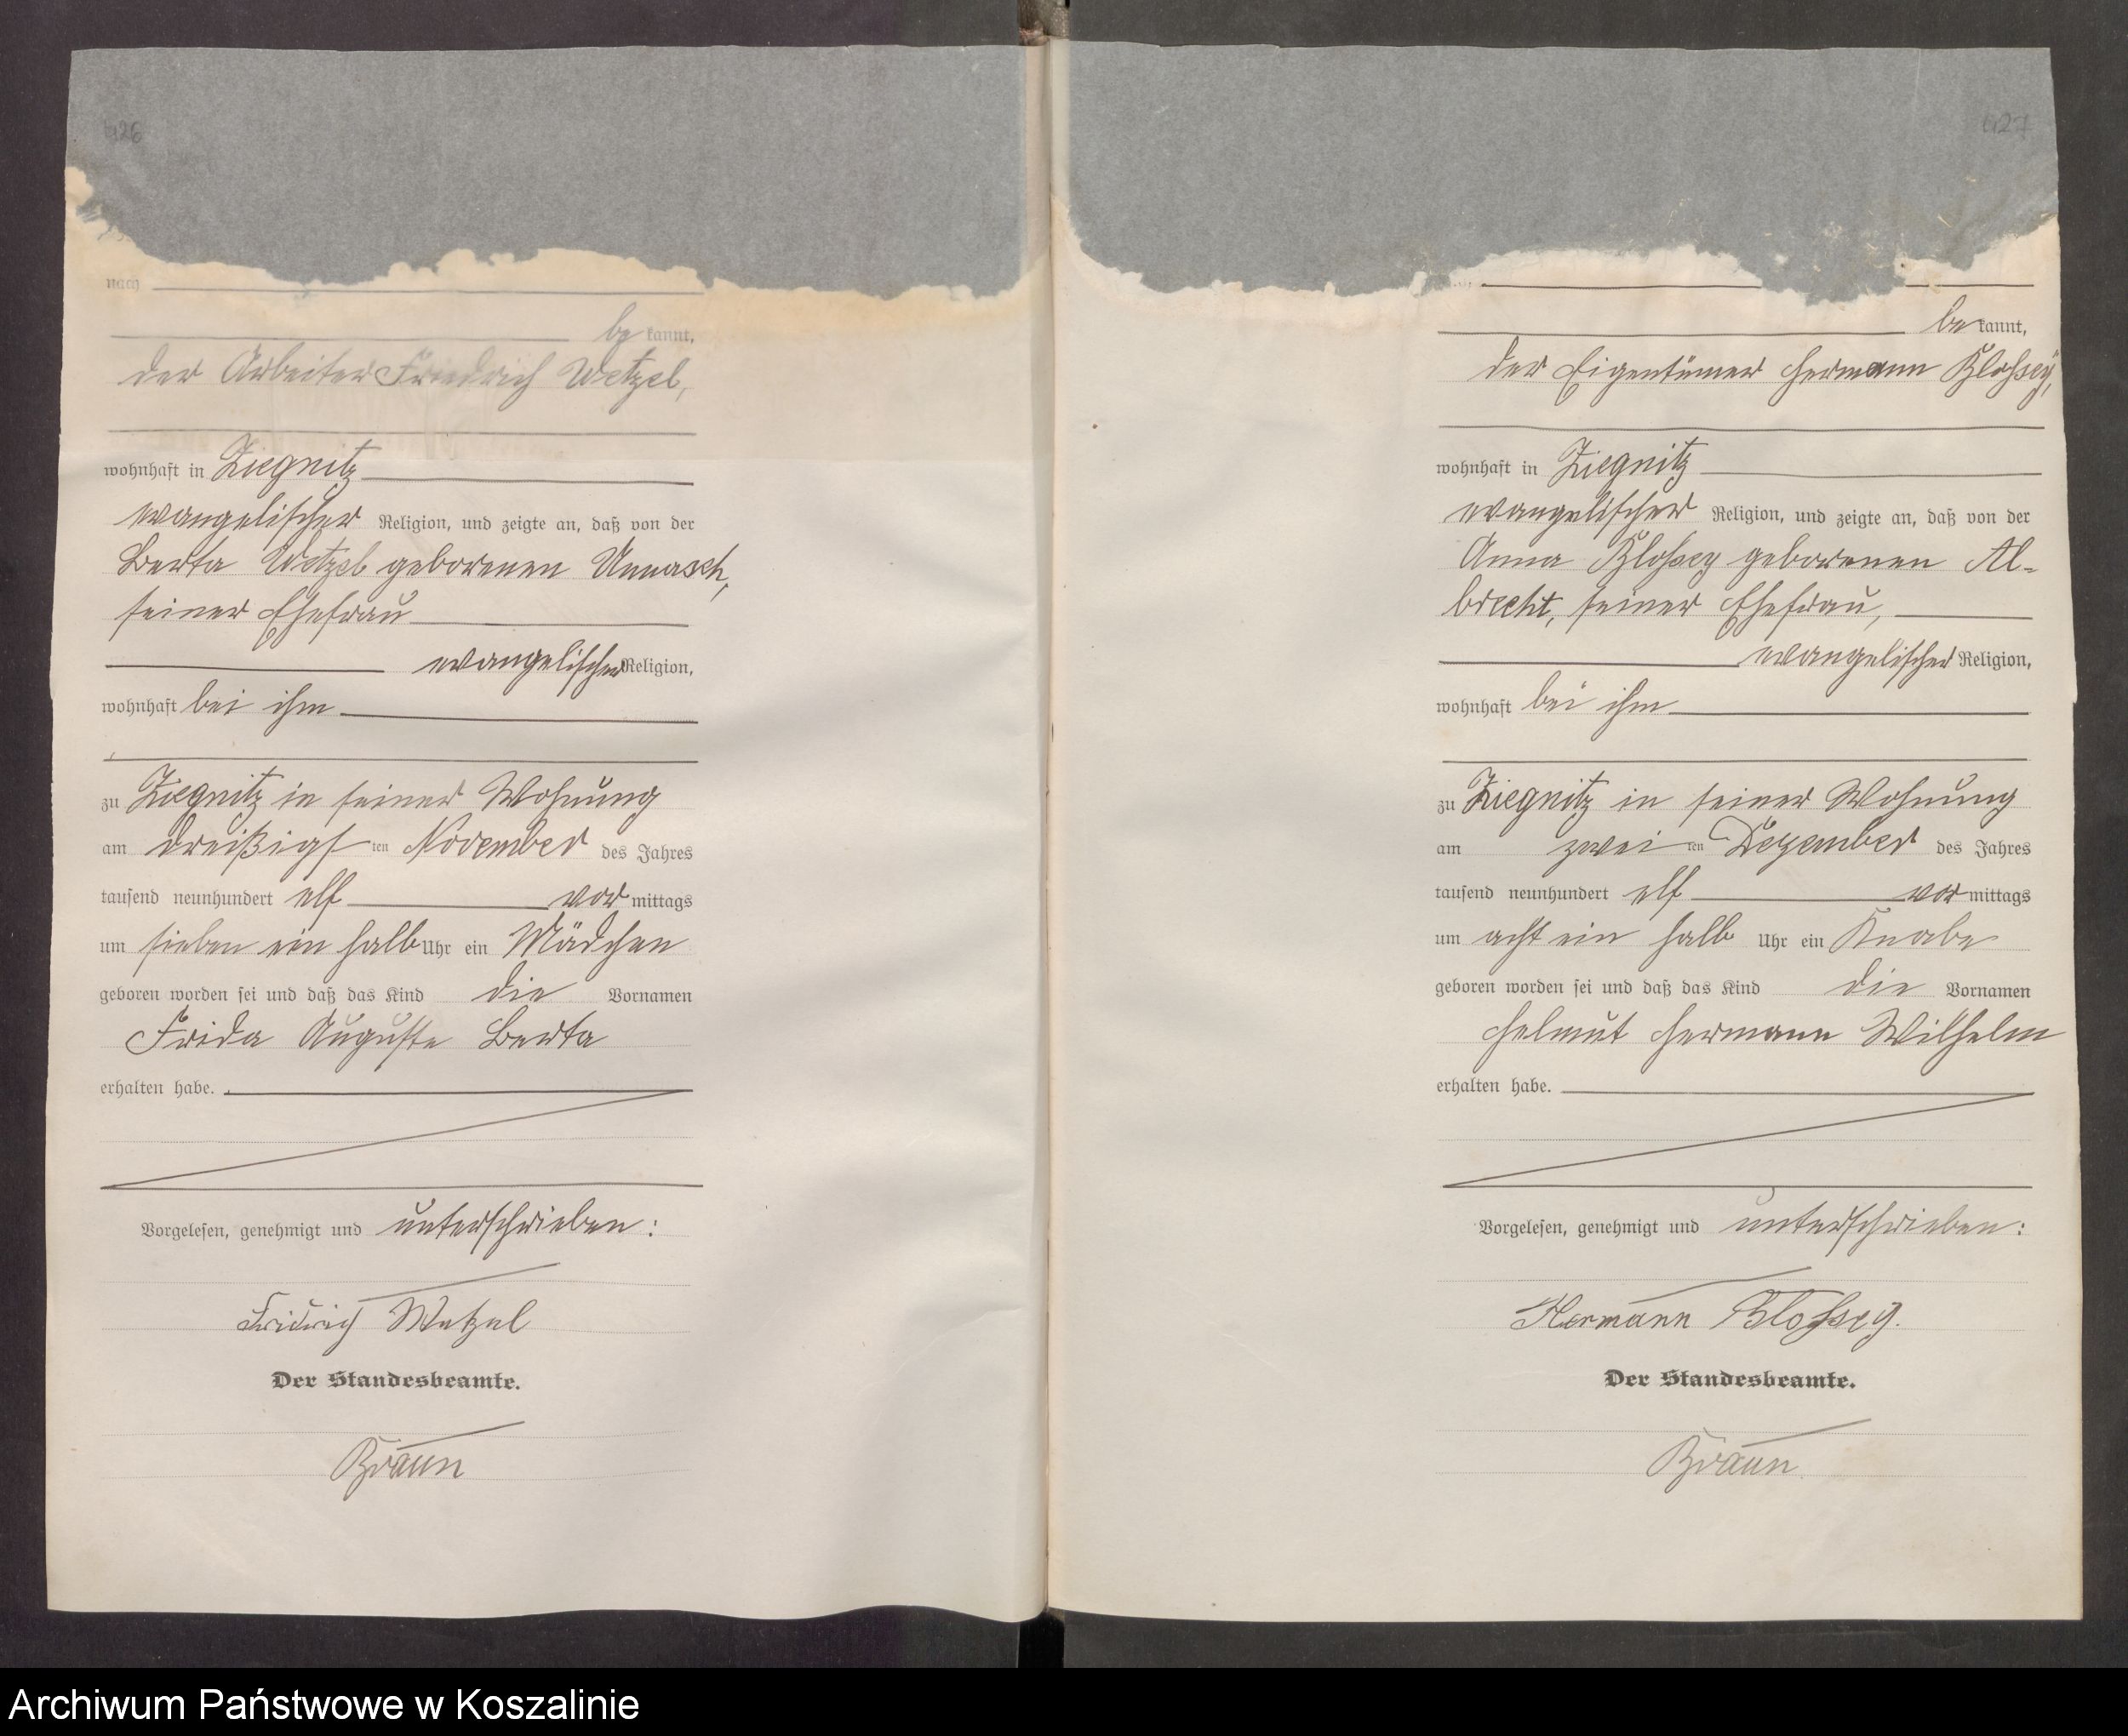 426
nach
be kannt,
der Arbeiter Friedrich Wetzel,
wohnhaft in Ziegnitz
evangelischer Religion, und zeigte an, daß von der
Berta Wetzel geborenen Unnasch,
seiner Ehefrau
evangelischer Religion,
wohnhaft bei ihm
zu Ziegnitz in seiner Wohnung
am dreißigsten November des Jahres
tausend neunhundert elf vor mittags
um sieben ein halb Uhr ein Mädchen
geboren worden sei und daß das Kind die Vornamen
Frida Auguste Berta
erhalten habe.
Vorgelesen, genehmigt und unterschrieben:
Fridrich Wetzel
Der Standesbeamte.
Braun
427
be kannt,
der Eigentümer Hermann Klossey,
wohnhaft in Ziegnitz
evangelischer Religion, und zeigte an, daß von der
Anna Klossey geborenen Al-
brecht, seiner Ehefrau,
evangelischer Religion,
wohnhaft bei ihm
zu Ziegnitz in seiner Wohnung
am zweiten Dezember des Jahres
tausend neunhundert elf vor mittags
um acht ein halb Uhr ein Knabe
geboren worden sei und daß das Kind die Vornamen
Helmut Hermann Wilhelm
erhalten habe.
Vorgelesen, genehmigt und unterschrieben:
Hermann Klossey.
Der Standesbeamte.
Braun.
Archiwum Państwowe w Koszalinie